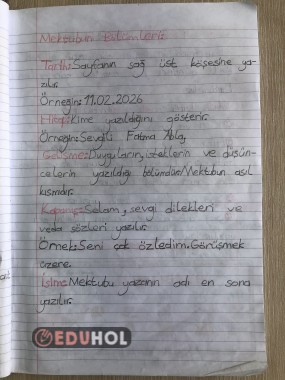 Mektubun Bölümleri:
Tarih:Sayfanın sağ üst köşesine ya-
zılır.
Örneğin: 11.02.2026
Hitap:Kime yazıldığını gösterir.
Örneğin:Sevgili Fatma Abla,
Gelişme:Duyguların, isteklerin ve düşün-
celerin yazıldığı bölümdür.Mektubun asıl
kısmıdır.
Kapanış:Selam, sevgi dilekleri ve
veda sözleri yazılır.
Örnek:Seni çok özledim.Görüşmek
üzere.
İsim:Mektubu yazanın adı en sona
yazılır.
EDUHOL